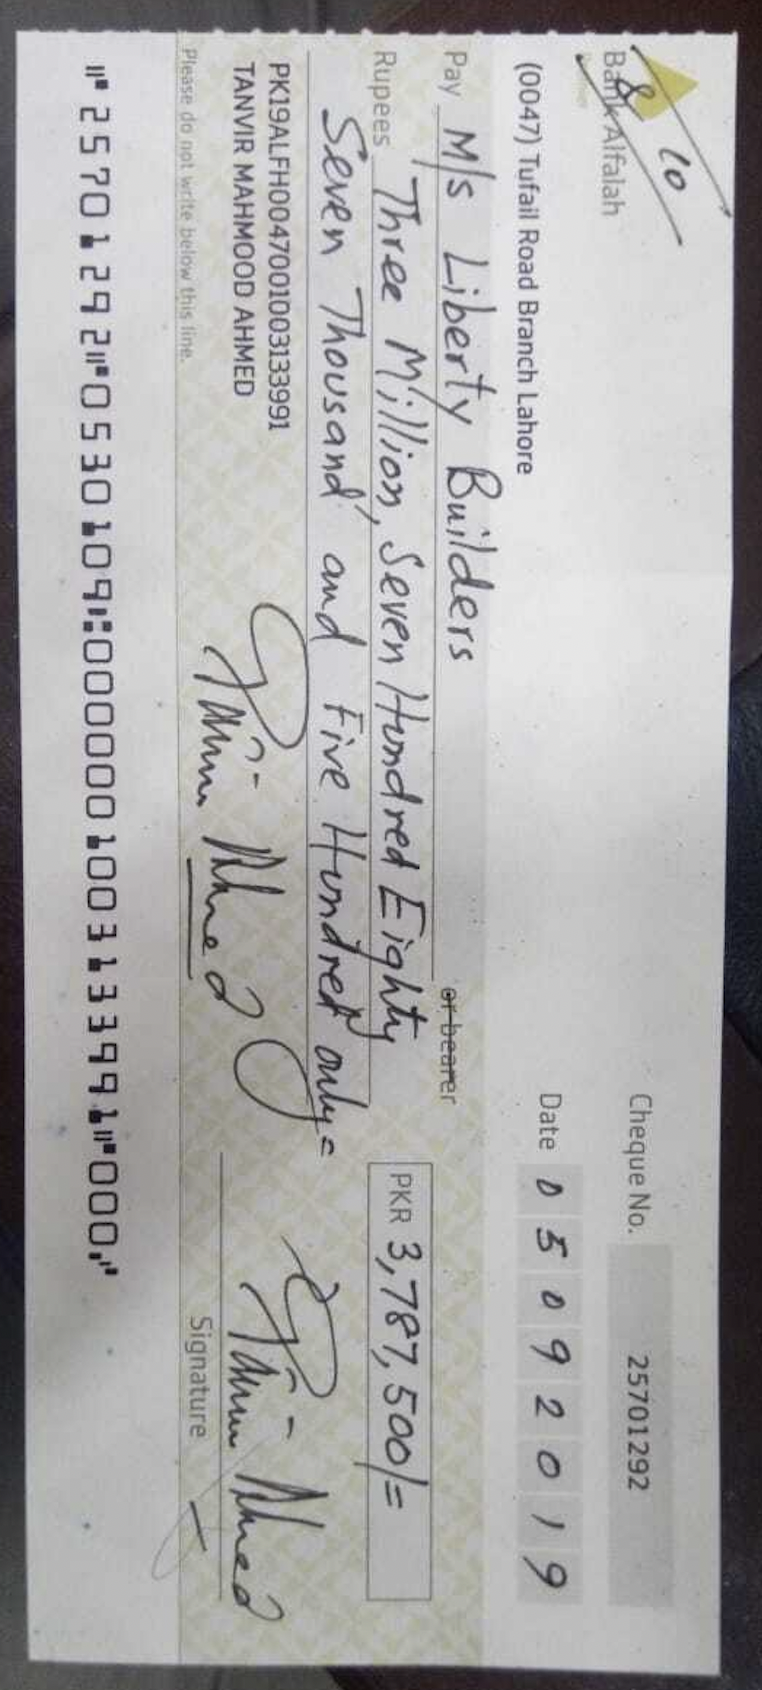 Bank Alfalah
& Co
Cheque No. 25701292
(0047) Tufail Road Branch Lahore
Date 05092019
Pay M/s Liberty Builders or bearer
Rupees Three Million, Seven Hundred Eighty
Seven Thousand and Five Hundred only=
PKR 3,787,500/=
PK19ALFH0047001003133991
TANVIR MAHMOOD AHMED
Signature
Please do not write below this line.
⑈25701292⑈0530109⑆0000001003133991⑈000⑈